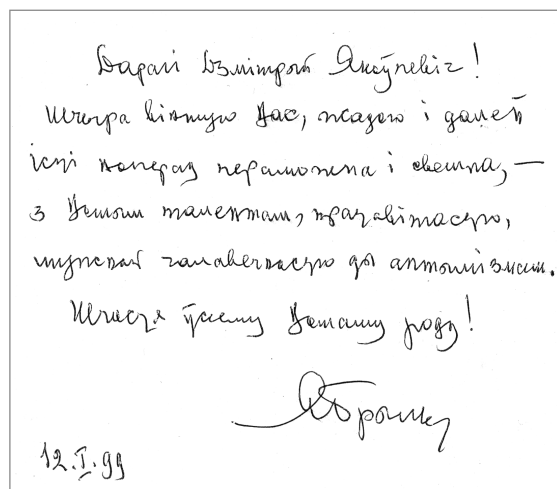 Дарагі Дзмітрый Якаўлевіч!
Шчыра вітаю Вас, жадаю і далей
ісці наперад пераможна і светла, —
з Вашым талентам, працавітасцю,
шчырай чалавечнасцю ды аптымізмам.
Шчасця ўсяму Вашаму роду!
12.I.99